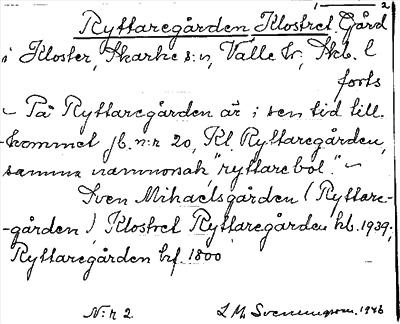 1 — 2
Ryttaregården, Klostret. Gård
i Kloster, Skarke s:n, Valle hr, Skb. l
forts
– På Ryttaregården är i sen tid till-
kommet jb. n:r 20, Kl. Ryttaregården,
samma namnorsak, "ryttarebol". –
Sven Mihaelsgården (Ryttare-
-gården) Klostret Ryttaregården hb. 1939;
Ryttaregården hf. 1800
N:r 2.
1946